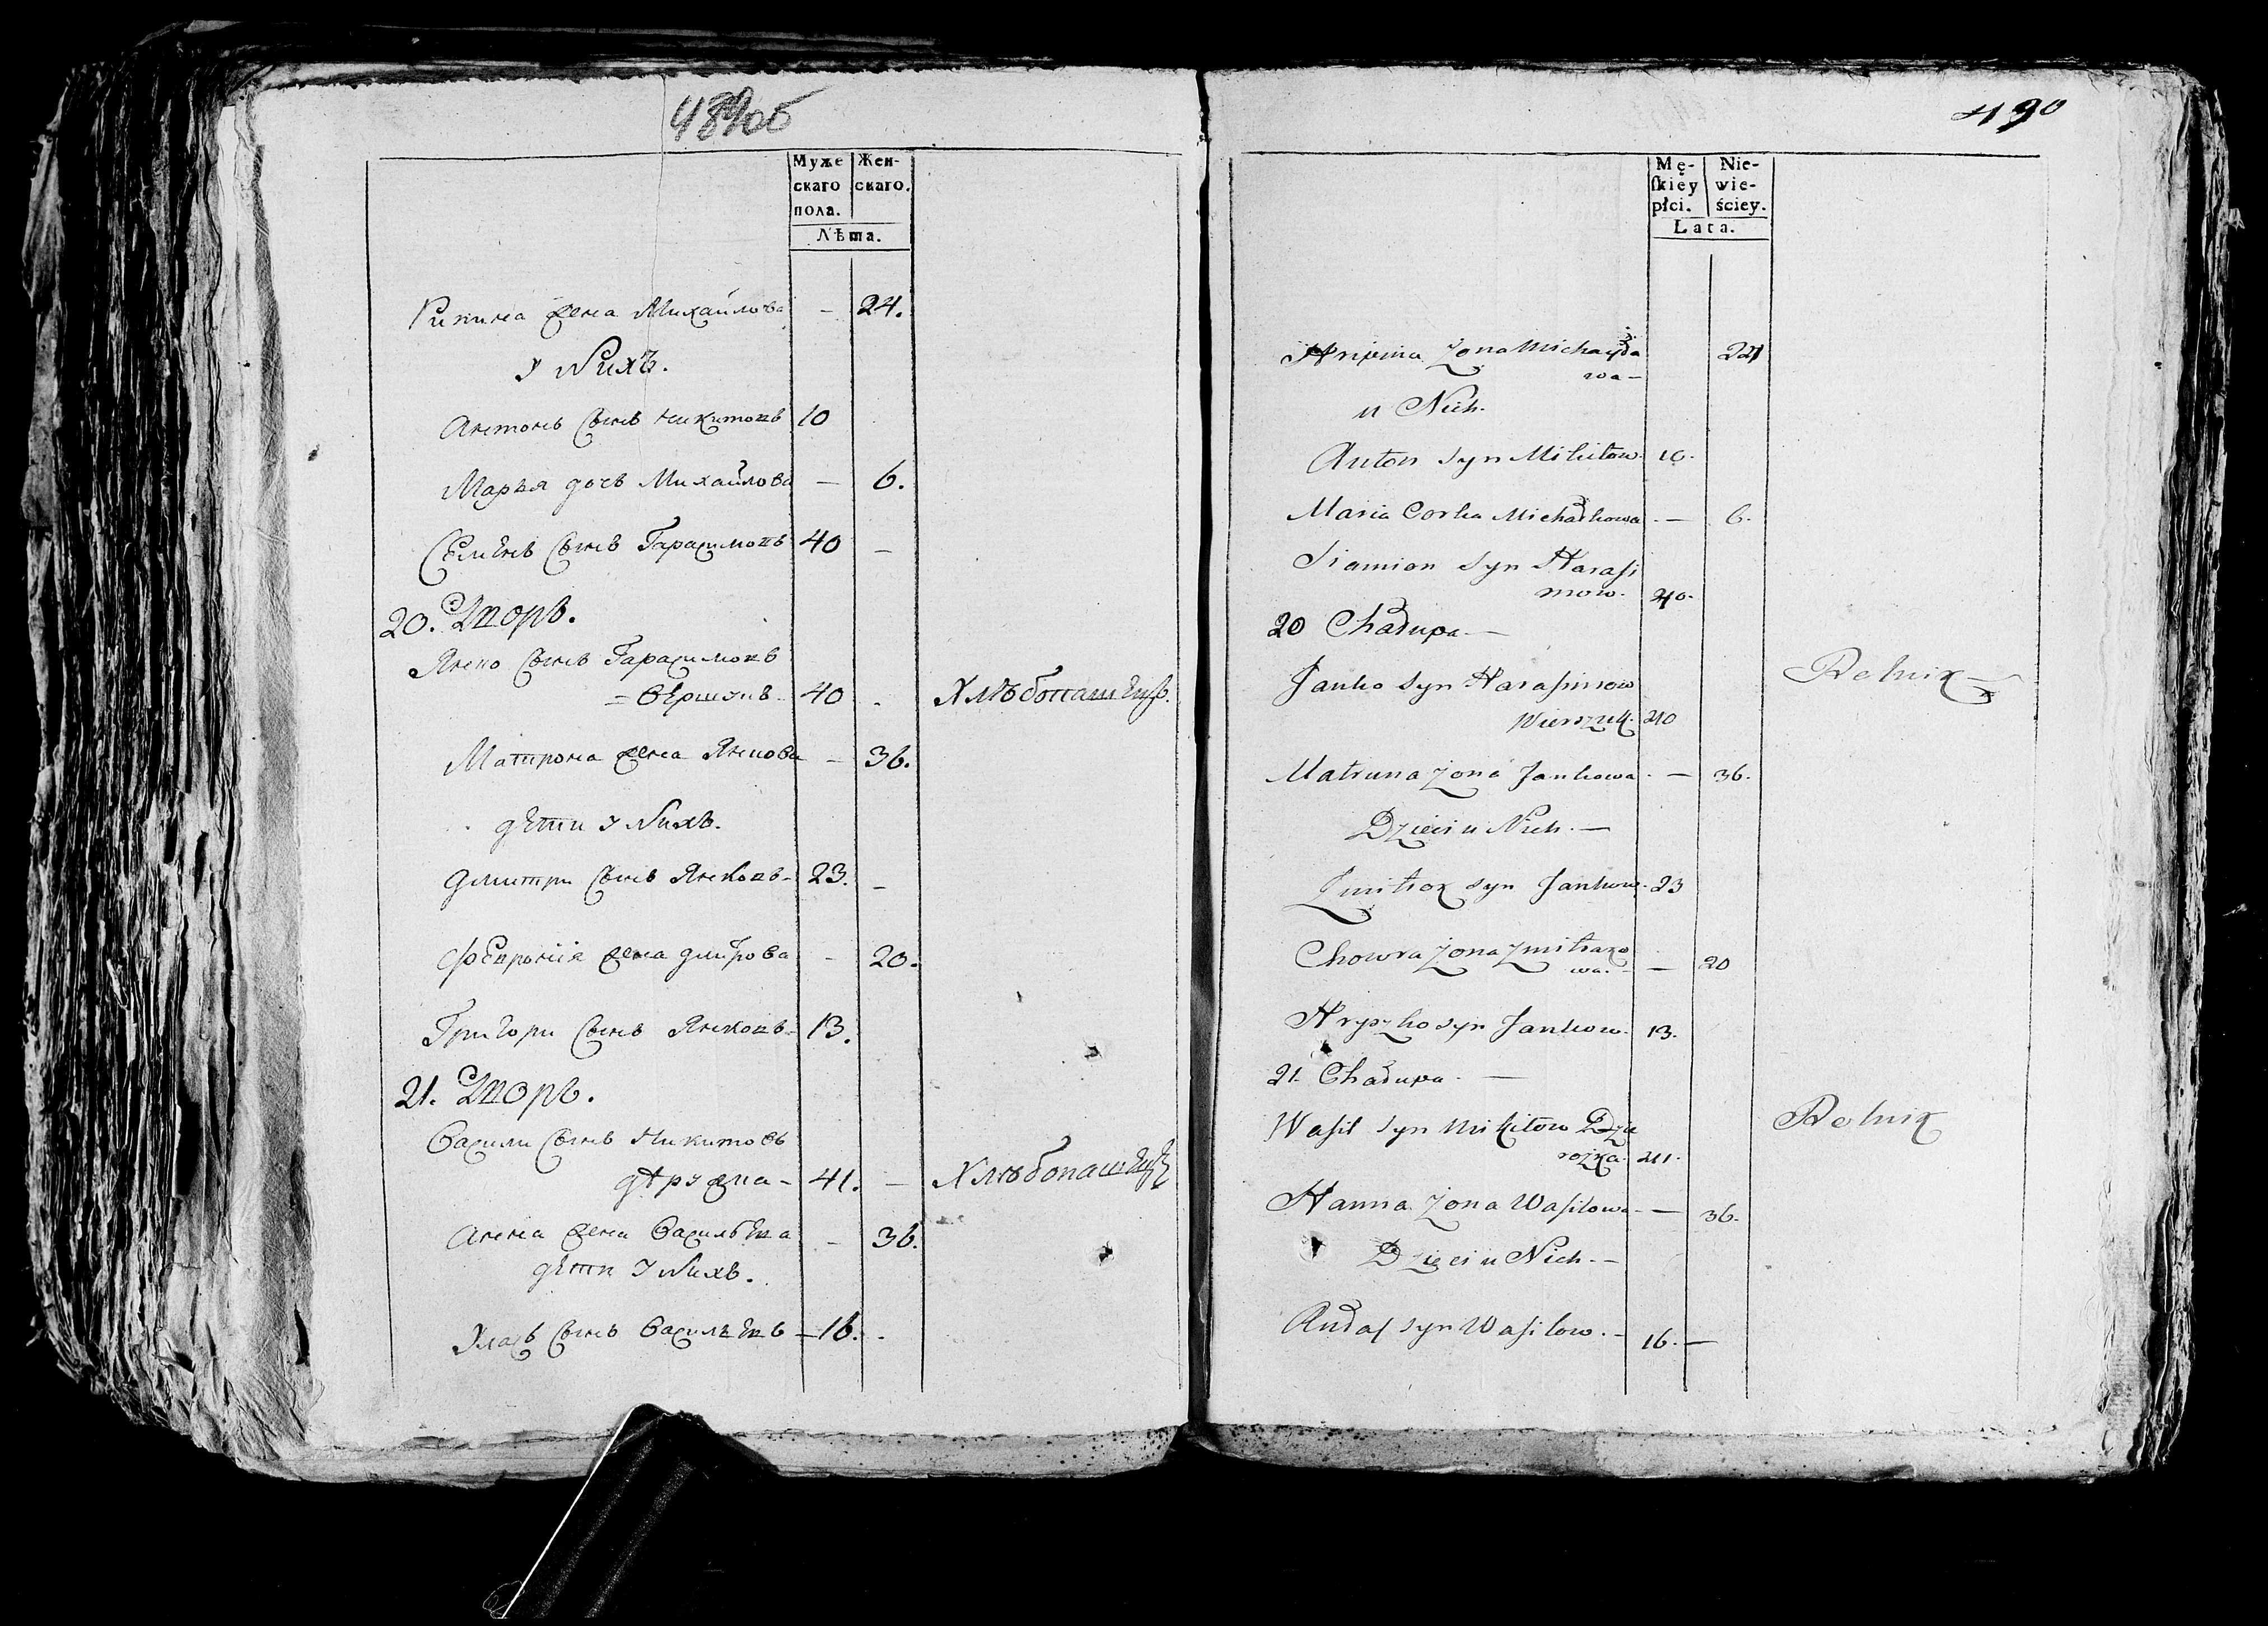 489об
Муже
скаго
пола.
Жен-
скаго.
Лѣта.
жена Михайлова - 24.
у Нихъ.
Антонъ Сынъ Никитовъ 10
Марья дочь Михайлова - 6.
Семенъ Сынъ Гарасимовъ 40 -
20. Дворъ.
Янко Сынъ Гарасимовъ
= Вершукъ 40 - Хлѣбопашецъ.
Матрона жена Янкова - 36.
дети у Нихъ.
Дмитри Сынъ Янковъ - 23. -
Февронiя жена дмитрова - 20.
Григори Сынъ Янковъ - 13.
21. Дворъ.
Васили Сынъ Никитовъ
41. - Хлѣбопашецъ
Анна жена Васильева - 36.
дети у Нихъ.
Улась Сынъ Васильевъ - 16. -
490
Mę-
skiey
płci.
Nie-
wie-
ściey.
Lata.
Hripina Zona Michayła
wa - 24
u Nich.
Anton syn Mikitow. 10.
Maria Corka Michałkowa. - 6.
Siamion syn Harasi
mow. 40.
20 Chałupa -
Janko syn Harasimow Rolnik
Wierszuk. 40
Matruna Zona Jankowa. - 36.
Dzieci u Nich. -
Zmitrok syn Jankow. 23
Chowra Zona Zmitrako
wa. - 20
Hryszko syn Jankow. 13.
21. Chałupa. -
Wasil syn Mikitow Rolnik
41.
Hanna Zona Wasilowa. - 36.
Dzieci u Nich. -
Aułas syn Wasilow. - 16. -